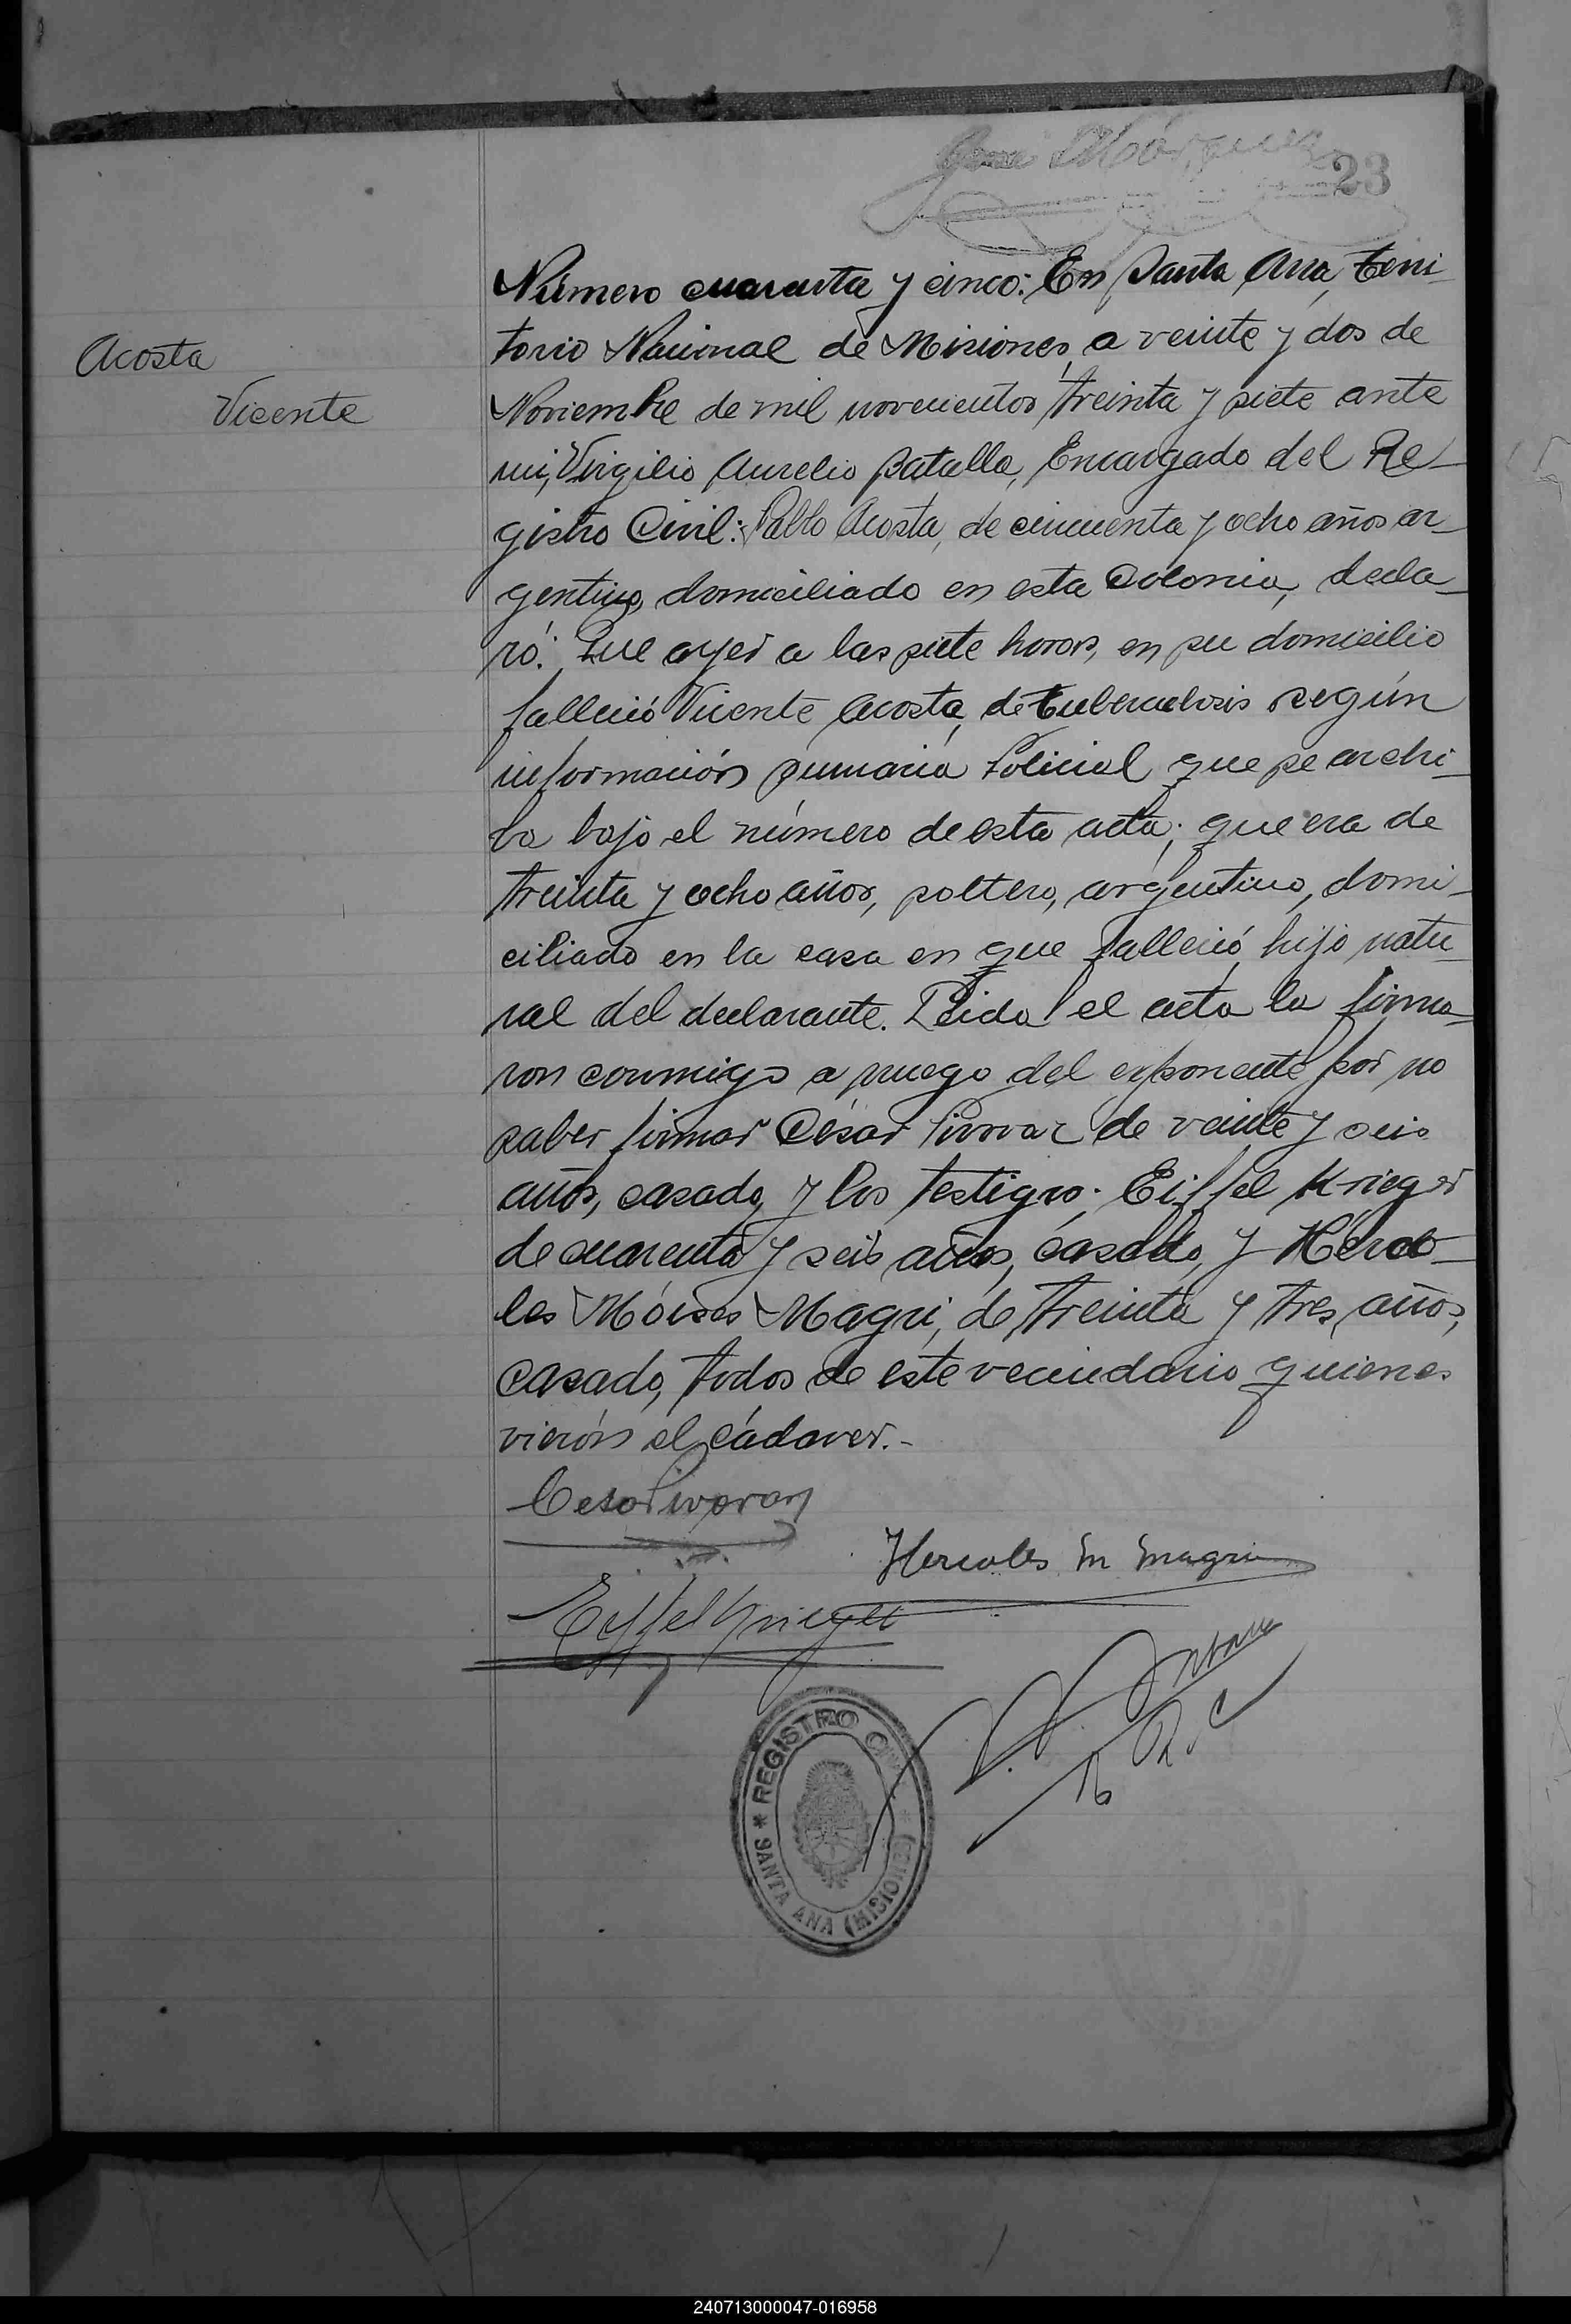 José Márquez
23
Acosta
Vicente
Número cuarenta y cinco: En Santa Ana, Terri-
torio Nacional de Misiones, a veinte y dos de
Noviembre de mil novecientos treinta y siete ante
mi, Virgilio Aurelio Batalla, Encargado del Re-
gistro Civil: Pablo Acosta, de cincuenta y ocho años ar-
gentino, domiciliado en esta Colonia, decla-
ró: Que ayer a las siete horas, en su domicilio
falleció Vicente Acosta, de tuberculosis según
información sumaria Policial que se archi-
va bajo el número de esta acta; que era de
treinta y ocho años, soltero, argentino, domi-
ciliado en la casa en que falleció, hijo natu-
ral del declarante. Leida el acta la firma-
ron conmigo a ruego del exponente por no
saber firmar César de veinte y seis
años, casado, y los testigos: Eiffel Krieger
de cuarenta y seis años, casado, y Hérco-
les Móises Magri, de treinta y tres años,
casado, todos de este vecindario quienes
vierón el cádaver.-
Cesar
Hercoles M Magri
Eiffel Krieger
R.C
* REGISTRO CIVIL *
SANTA ANA (MISIONES)
240713000047-016958